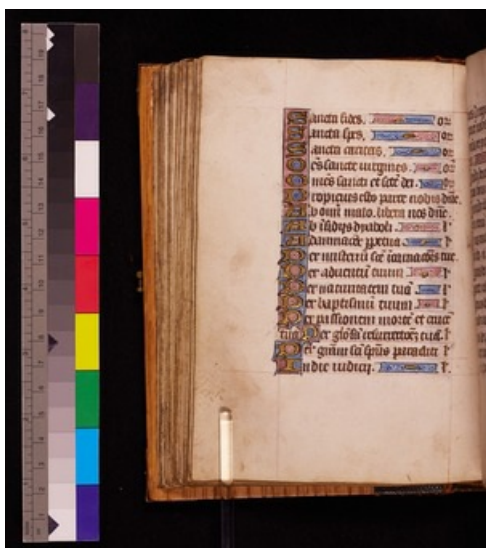 Sancta fides. or
Sancta spes. or
Sancta caritas. or
Oēs sancte uirgines. or
Omēs sancti et scē dei. or
Propicius esto parce nobis dn̄e.
Ab omni malo. libera nos dn̄e.
Ab insidijs dyaboli. l
A dampnacōe ppetua l
Per misteriū scē incarnacōis tue.
Per aduentū tuum l
Per natiuitatem tuā l
Per baptismū tuum l
Per passionem mortē et crucē
tuā Per gloīsā resurrectōez tuā. l
Per grām sci spūs paracliti l
In die iudicij. l